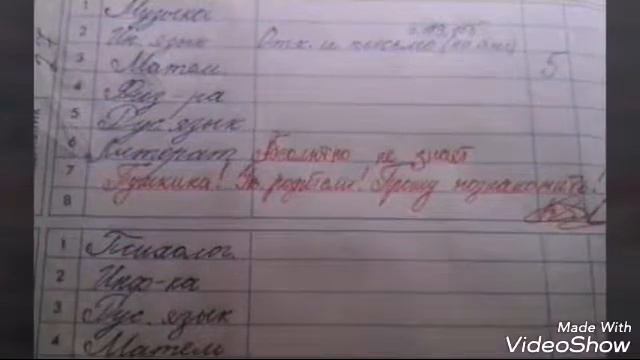 1 Музыка
2 Ин. язык
3 Матем. 5
4 Физ-ра
5 Рус. язык
6 Литерат. Абсолютно не знает
7 Пушкина! Ув. родители! Прошу познакомить!
8
1 Психолог.
2 Инф-ка
3 Рус. язык
4 Матем
Made With
VideoShow